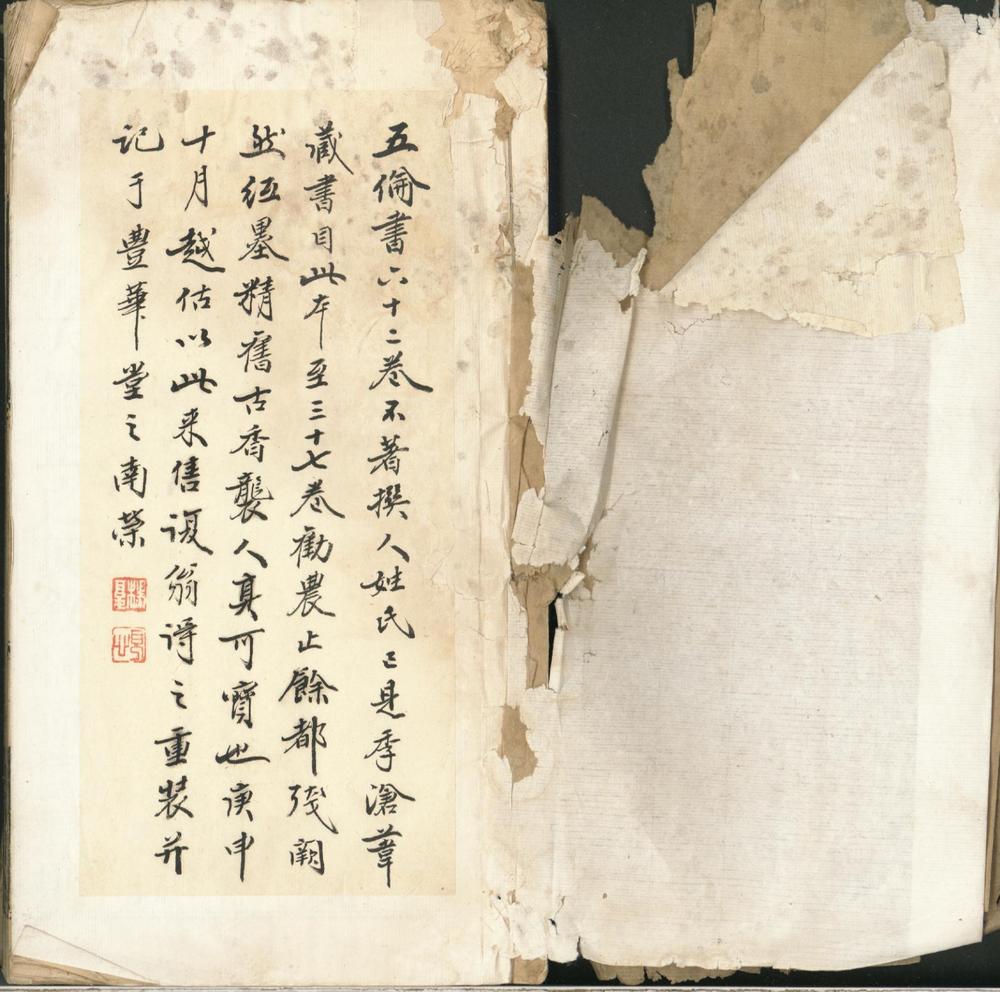 五倫書六十二卷不著撰人姓氏已見季滄葦
藏書目此本至三十七卷勸農止餘都殘闕
然紙墨精舊古香襲人真可寶也庚申
十月越估以此来售復翁得之重裝并
記于豐華堂之南榮